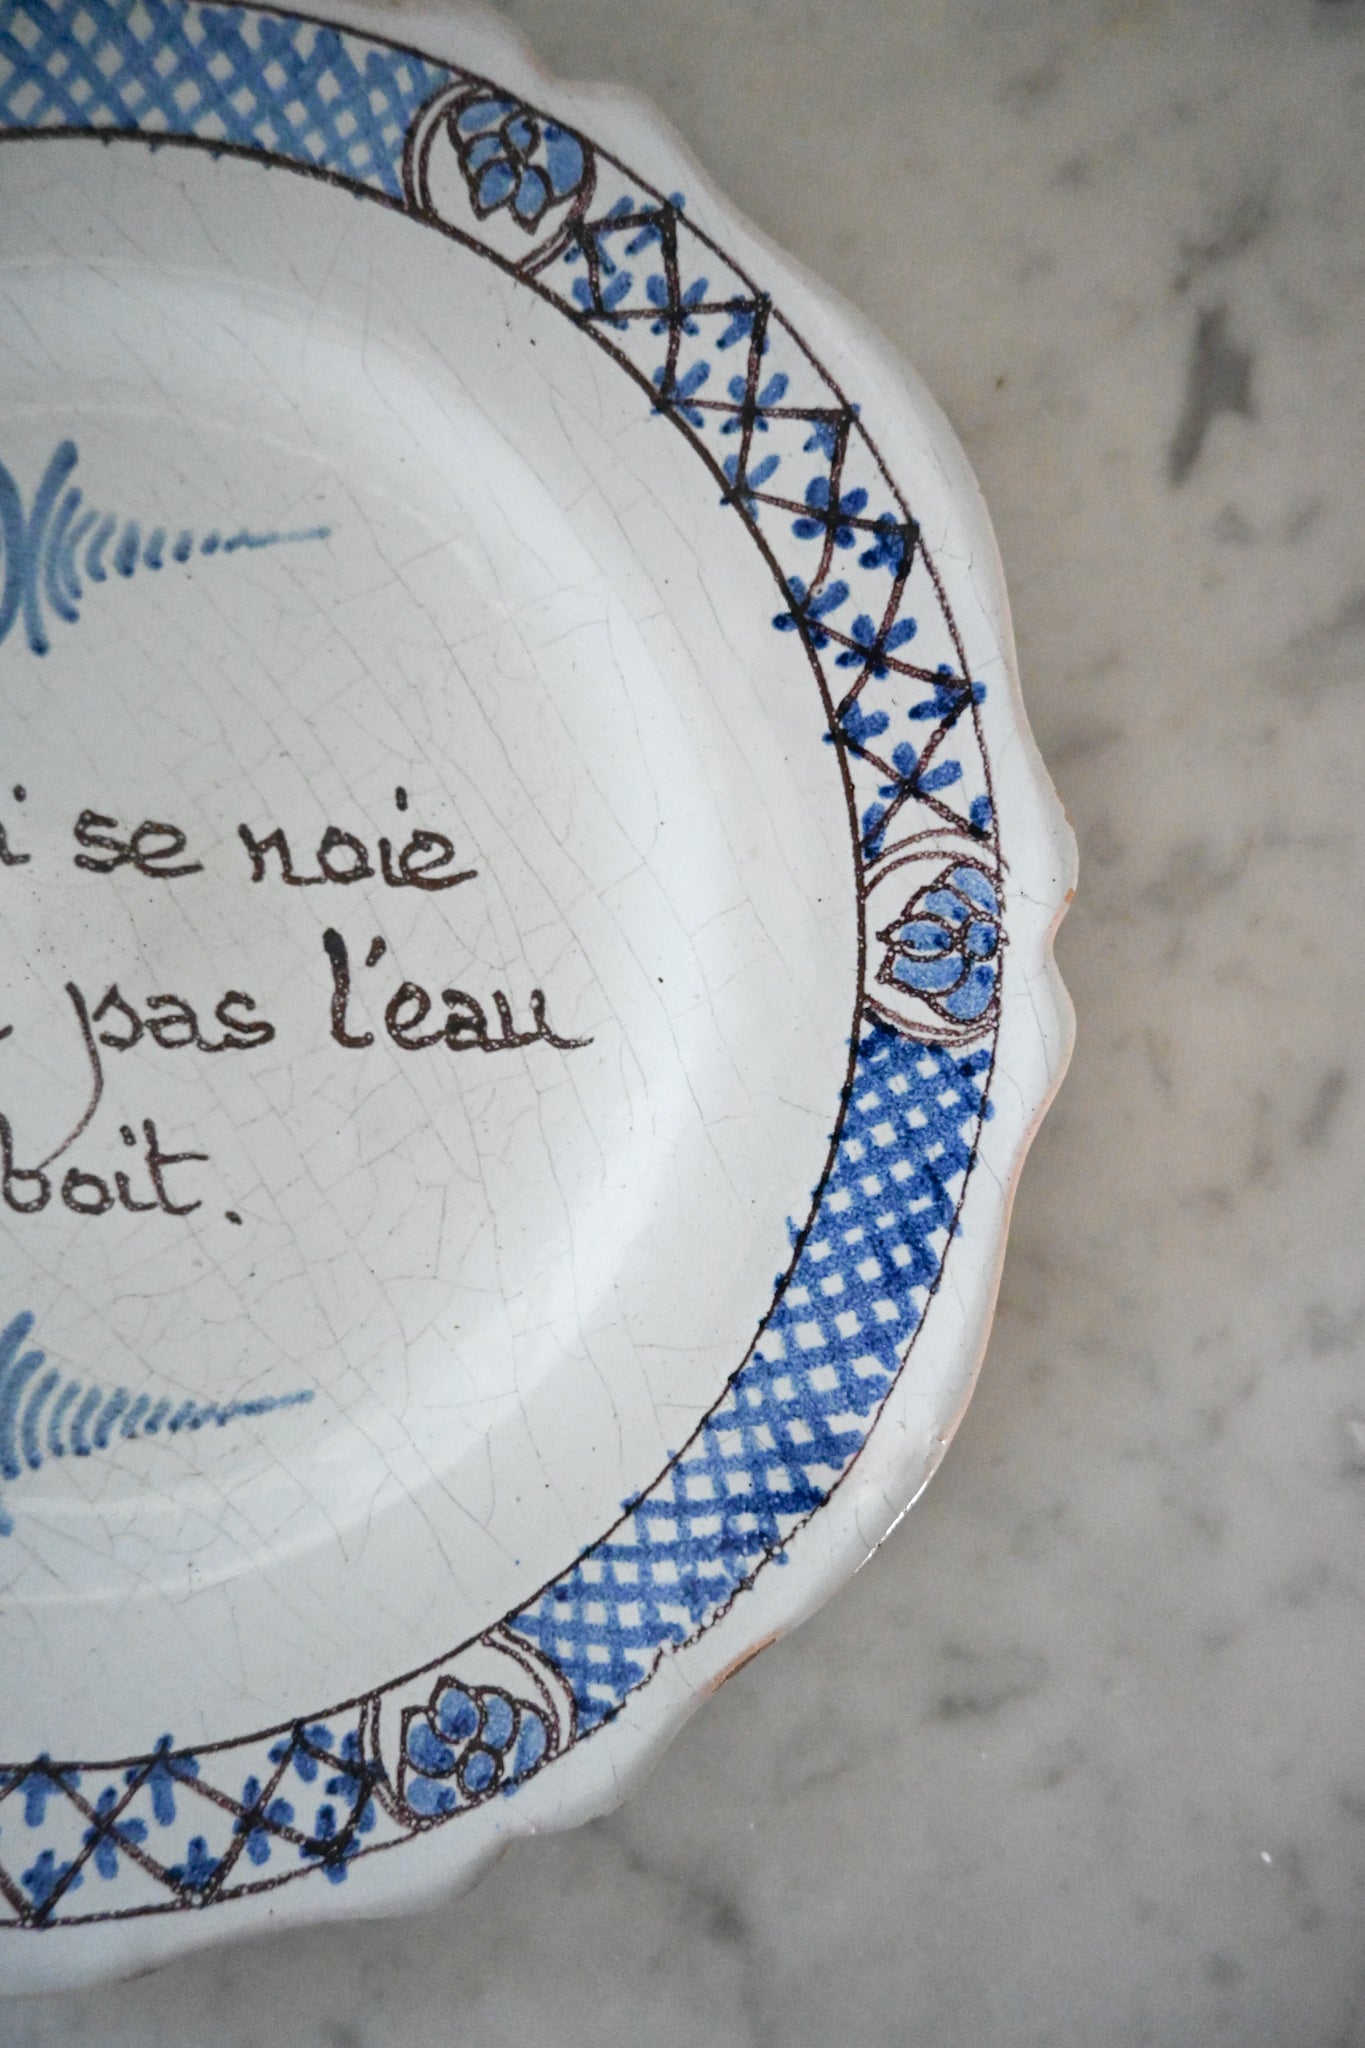 se noie
pas l'eau
boit.